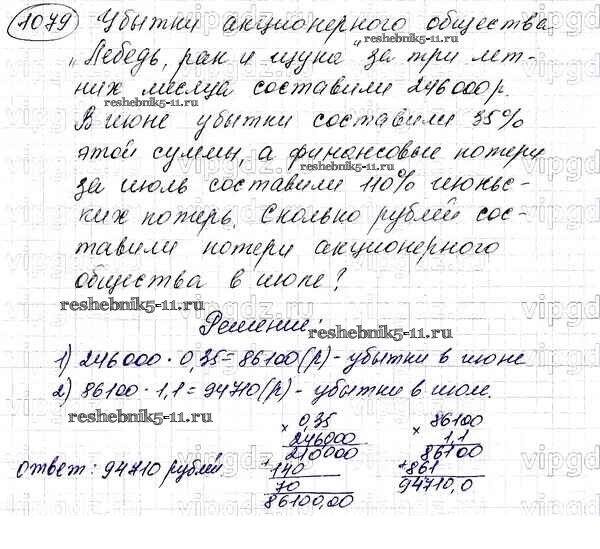 1079 Убытки акционерного общества
„Лебедь, рак и щука“ за три лет-
них месяца составили 246000р.
В июне убытки составили 35%
этой суммы, а финансовые потери
за июль составили 110% июньс-
ких потерь. Сколько рублей сос-
тавили потери акционерного
общества в июле?
Решение:
1) 246000 · 0,35 = 86100 (р) - убытки в июне
2) 86100 · 1,1 = 94710 (р) - убытки в июле.
× 0,35
246000
210000
+ 140
70
86100,00
× 86100
1,1
86100
+ 861
94710,0
ответ: 94710 рублей
reshebnik5-11.ru
reshebnik5-11.ru
reshebnik5-11.ru
reshebnik5-11.ru
reshebnik5-11.ru
reshebnik5-11.ru
reshebnik5-11.ru